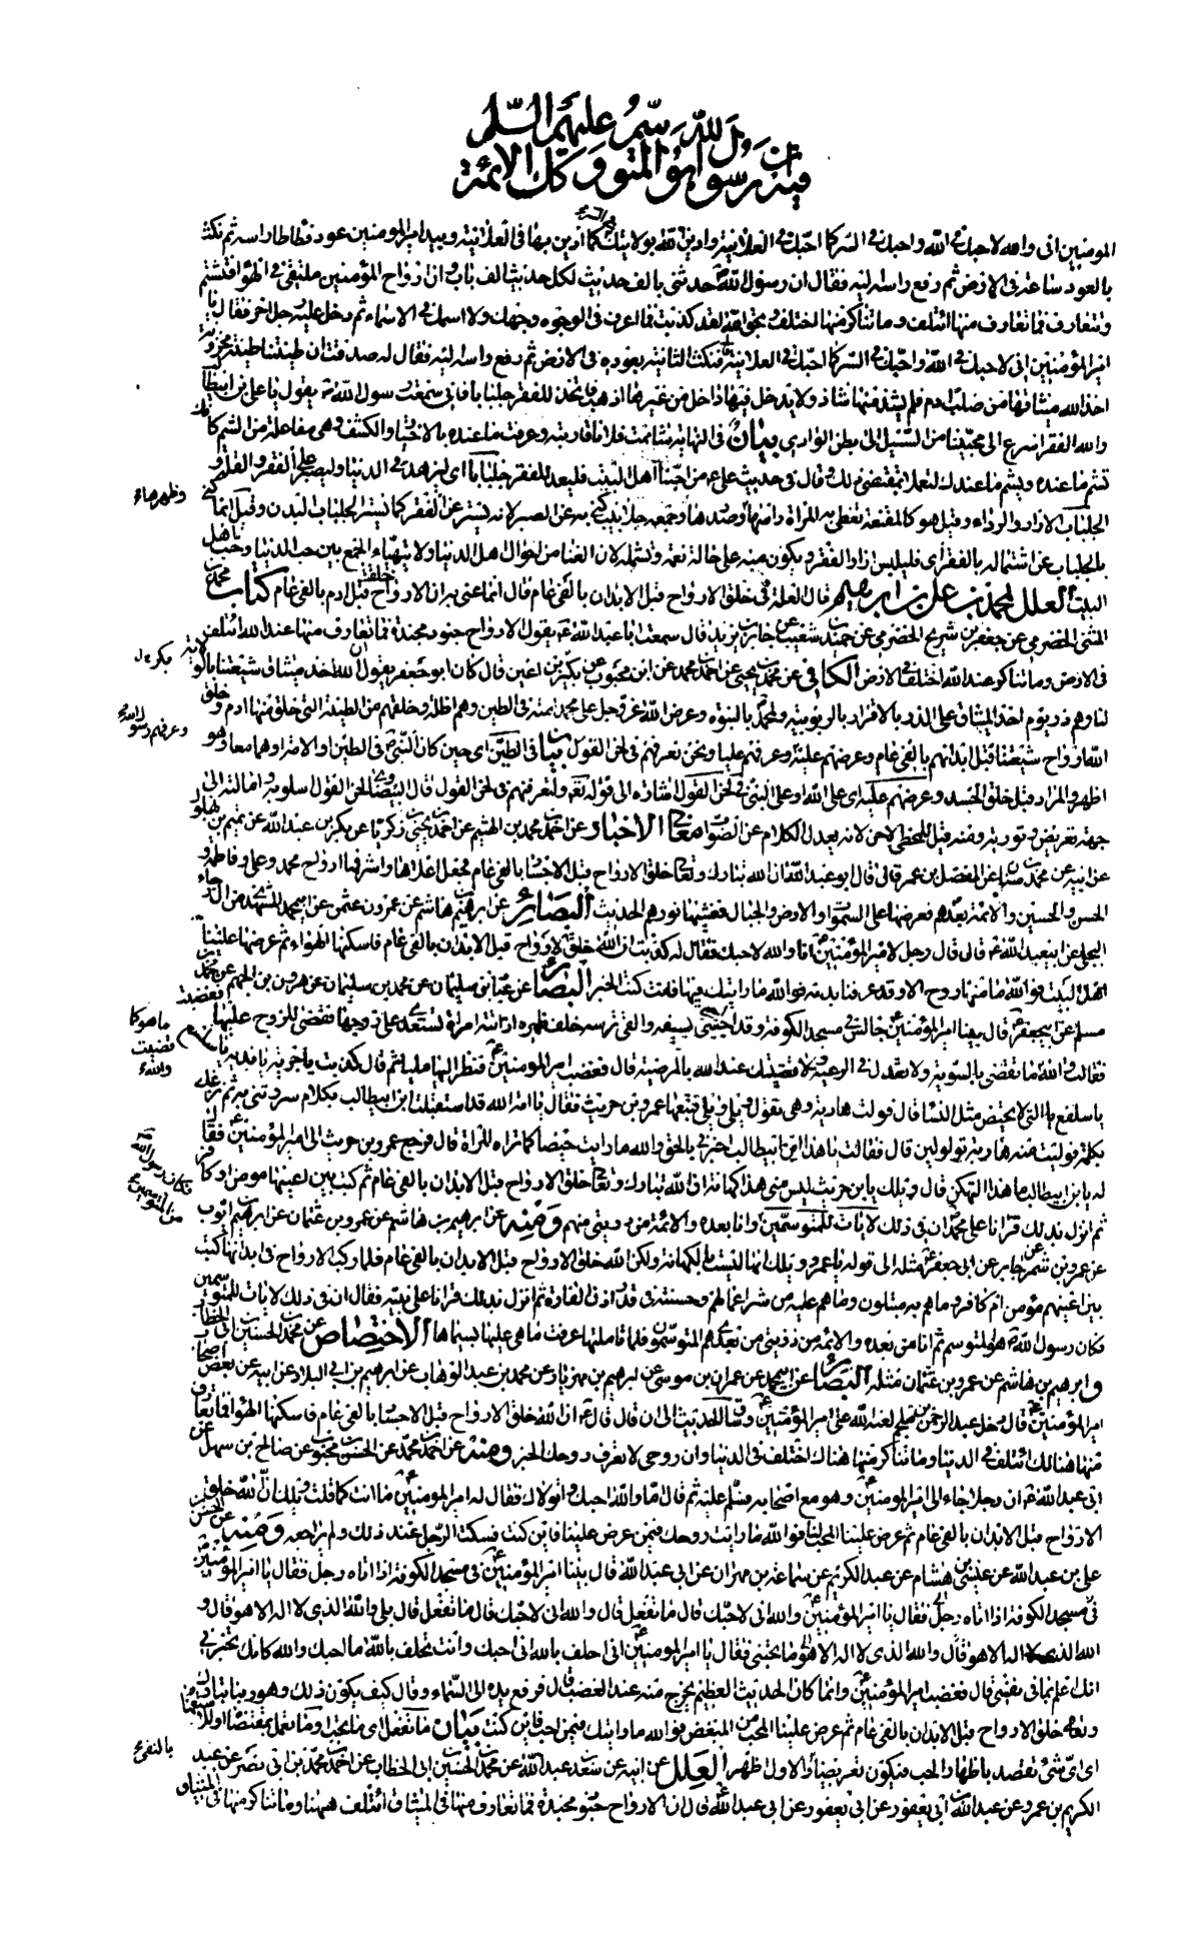 المومنين انى والله لاحبك فى الله واحبك فى السر كما احبك فى العلانية وادين الله بولايتك كما ادين بها فى العلانية وبيد امير المومنين عود فطاطا راسه ثم نكت
بالعود ساعة فى الارض ثم رفع راسه اليه فقال ان رسول الله حدثنى بالف حديث لكل حديث الف باب وان ارواح المؤمنين ملتقى فى الهواء فتشتم
وتتعارف فما تعارف منها ائتلف وما تناكر منها اختلف وبحق الله لقد كذبت فما اعرف فى الوجوه وجهك ولا اسمك فى الاسماء ثم دخل عليه رجل اخر فقال يا
امير المؤمنين انى لاحبك فى الله واحبك فى السر كما احبك فى العلانية فنكت الثانية بعوده فى الارض ثم رفع راسه اليه فقال له صدقت ان طينتنا طينة مخزونة
اخذ الله ميثاقها من صلب ادم فلم يشذ منها شاذ ولا يدخل فيها داخل من غيرها اذهب فاتخذ للفقر جلبابا فانى سمعت رسول الله يقول يا على بن ابيطالب
والله الفقر اسرع الى محبينا من السيل الى بطن الوادى بيان فى النهاية شاممت فلانا قاربته وعرفت ما عنده بالاختبار والكشف وهى مفاعلة من الشم كانك
تشم ما عنده ويشم ما عندك لتعملا بمقتضى ذلك وقال فى حديث على من احبنا اهل البيت فليعد للفقر جلبابا اى ليزهد فى الدنيا وليصبر على الفقر والقلة و
الجلباب الازار والرداء وقيل هو كالمقنعة تغطى به المراة راسها وظهرها وصدرها وجمعه جلابيب كنى به عن الصبر لانه يستر الفقر كما يستر الجلباب البدن وقيل انما كنى
بالجلباب عن اشتماله بالفقر اى فليلبس ازار الفقر ويكون منه على حالة تعمه وتشمله لان الغنا من احوال اهل الدنيا ولا يتهياء الجمع بين حب الدنيا وحب اهل
البيت العلل لمحمد بن على بن ابراهيم قال العلة فى خلق الارواح قبل الابدان بالفى عام قال انما عنى به ان الارواح خلقت قبل ادم بالفى عام كتاب محمد بن
المثنى الحضرمى عن جعفر بن شريح الحضرمى عن حميد بن شعيب عن جابر بن يزيد قال سمعت ابا عبد الله يقول الارواح جنود مجندة فما تعارف منها عند الله ائتلف
فى الارض وما تناكر عند الله اختلف فى الارض الكافى عن محمد بن يحيى عن احمد بن محمد عن ابن محبوب عن بكير بن اعين قال كان ابو جعفر يقول ان الله اخذ ميثاق شيعتنا بالولاية
لنا وهم ذر يوم اخذ الميثاق على الذر بالاقرار بالربوبية ولمحمد بالنبوة وعرض الله عز وجل على محمد امته فى الطين وهم اظلة وخلقهم من الطينة التى خلق منها ادم وخلق
الله ارواح شيعتنا قبل ابدانهم بالفى عام وعرضهم عليه وعرفهم عليا ونحن نعرفهم فى لحن القول بيان فى الطين اى حين كان النبى فى الطين والامة او هما معا وهو
اظهر والمراد قبل خلق الجسد وعرضهم عليه اى على الله او على النبى فى لحن القول اشارة الى قوله تعالى ولتعرفنهم فى لحن القول قال البيضاوى لحن القول اسلوبه او امالته الى
جهة تعريض وتورية ومنه قيل للمخطى لاحن لانه يعدل الكلام عن الصواب معانى الاخبار عن احمد بن محمد بن الهيثم عن احمد بن يحيى بن زكريا عن بكر بن عبد الله عن تميم بن بهلول
عن ابيه عن محمد بن سنان عن المفضل بن عمر قال قال ابو عبد الله ان الله تبارك وتعالى خلق الارواح قبل الاجساد بالفى عام فجعل اعلاها واشرفها ارواح محمد وعلى وفاطمة و
الحسن والحسين والائمة بعدهم فعرضها على السموات والارض والجبال فغشيها نورهم الحديث البصائر عن ابراهيم بن هاشم عن عمرو بن عثمن عن ابى محمد المشهدى من ال رجاء
البجلى عن ابيعبد الله قال قال رجل لامير المؤمنين انا والله لاحبك فقال له كذبت ان الله خلق الارواح قبل الابدان بالفى عام فاسكنها الهواء ثم عرضها علينا
اهل البيت فوالله ما منها روح الا وقد عرفنا بدنه فوالله ما رايتك فيها فاين كنت الخبر البصائر عن عباد بن سليمان عن محمد بن سليمان عن هرون بن الجهم عن محمد بن
مسلم عن ابيجعفر قال بينا امير المؤمنين جالس فى مسجد الكوفة وقد احتبى بسيفه والقى ترسه خلف ظهره اذ اتته امراة تستعدى على زوجها فقضى للزوج عليها فغضبت
فقالت والله ما هو كما قضيت والله ما تقضى بالسوية ولا تعدل فى الرعية ولا قضيتك عند الله بالمرضية قال فغضب امير المومنين فنظر اليها مليا ثم قال كذبت يا جرية يا بذية يا
يا سلفع يا التى لا تحيض مثل النساء قال فولت هاربة وهى تقول ويلى ويلى فتبعها عمرو بن حريث فقال يا امة الله قد استقبلت ابن ابيطالب بكلام سررتنى به ثم نزغك
بكلمة فوليت منه هاربة تولولين قال فقالت يا هذا ان ابن ابيطالب اخبرنى بالحق والله ما رايت حيضا كما تراه المراة قال فرجع عمرو بن حريث الى امير المؤمنين فقال
له يا ابن ابيطالب ما هذا التكهن قال ويلك يا ابن حريث ليس منى هذا كهانة ان الله تبارك وتعالى خلق الارواح قبل الابدان بالفى عام ثم كتب بين اعينها مومن او كافر
ثم انزل بذلك قرانا على محمد ان فى ذلك لايات للمتوسمين وانا بعده والائمة من ذريتى منهم ومنه عن ابرهيم بن هاشم عن عمرو بن عثمان عن ابرهيم بن ايوب
عن عمرو بن شمر عن جابر عن ابى جعفر مثله الى قوله يا عمرو ويلك انها ليست بالكهانة ولكن الله خلق الارواح قبل الابدان بالفى عام فلما ركب الارواح فى ابدانها كتب
بين اعينهم مؤمن ام كافر وما هم به مبتلون وما هم عليه من شر اعمالهم وحسنته فى قدر اذن الفارة ثم انزل بذلك قرانا على نبيه فقال ان فى ذلك لايات للمتوسمين
فكان رسول الله هو المتوسم ثم انا من بعده والائمة من ذريتى من بعدى هم المتوسمون فلما تاملتها عرفت ما هى عليها بسيماها الاختصاص عن محمد بن الحسين بن ابى الخطاب
و ابرهيم بن هاشم عن عمرو بن عثمان مثله البصائر عن ابى محمد عن عمران بن موسى عن ابرهيم بن مهزيار عن محمد بن عبد الوهاب عن ابرهيم بن ابى البلاد عن ابيه عن بعض اصحاب
امير المؤمنين قال دخل عبد الرحمن بن ملجم لعنه الله على امير المؤمنين وساق الحديث الى ان قال قال ان الله خلق الارواح قبل الاجساد بالفى عام فاسكنها الهواء فما تعارف
منها هنالك ائتلف فى الدنيا وما تناكر منها هناك اختلف فى الدنيا وان روحى لا تعرف روحك الخبر ومنه عن احمد بن محمد عن الحسن بن محبوب عن صالح بن سهل عن
ابى عبد الله ان رجلا جاء الى امير المومنين وهو مع اصحابه فسلم عليه ثم قال اما والله احبك واتولاك فقال له امير المومنين ما انت كما قلت ويلك ان الله خلق
الارواح قبل الابدان بالفى عام ثم عرض علينا المحب لنا فوالله ما رايت روحك فيمن عرض علينا فاين كنت فسكت الرجل عند ذلك ولم يراجعه ومنه عن الحسن بن
على بن عبد الله عن عبيس بن هشام عن عبد الكريم عن سماعة بن مهران عن ابى عبد الله قال بينا امير المؤمنين فى مسجد الكوفة اذ اتاه رجل فقال يا امير المؤمنين
فى مسجد الكوفة اذا اتاه رجل فقال يا امير المؤمنين والله انى لاحبك قال ما تفعل قال والله انى لاحبك قال ما تفعل قال بلى والله الذى لا اله الا هو قال و
الله الذى لا اله الا هو قال والله الذى لا اله الا هو ما تحبنى فقال يا امير المومنين انى احلف بالله انى احبك وانت تحلف بالله ما احبك والله كانك تخبرنى
انك اعلم بما فى نفسى قال فغضب امير المؤمنين وانما كان الحديث العظيم يخرج منه عند الغضب قال فرفع يده الى السماء وقال كيف يكون ذلك وهو ربنا تبارك
وتعالى خلق الارواح قبل الابدان بالفى عام ثم عرض علينا المحب من المبغض فوالله ما رايتك فيمن احب فاين كنت بيان ما تفعل اى ما تحب وما تعمل بمقتضاه او
اى اى شئ تقصد باظهار الحب فيكون تعريضا والاول اظهر العلل عن ابيه عن سعد بن عبد الله عن محمد بن الحسين بن ابى الخطاب عن احمد بن محمد بن ابى نصر عن عبد
الكريم بن عمرو عن عبد الله بن ابى يعفور عن ابى عبد الله قال ان الارواح جنود مجندة فما تعارف منها فى الميثاق ائتلف ههنا وما تناكر منها فى الميثاق